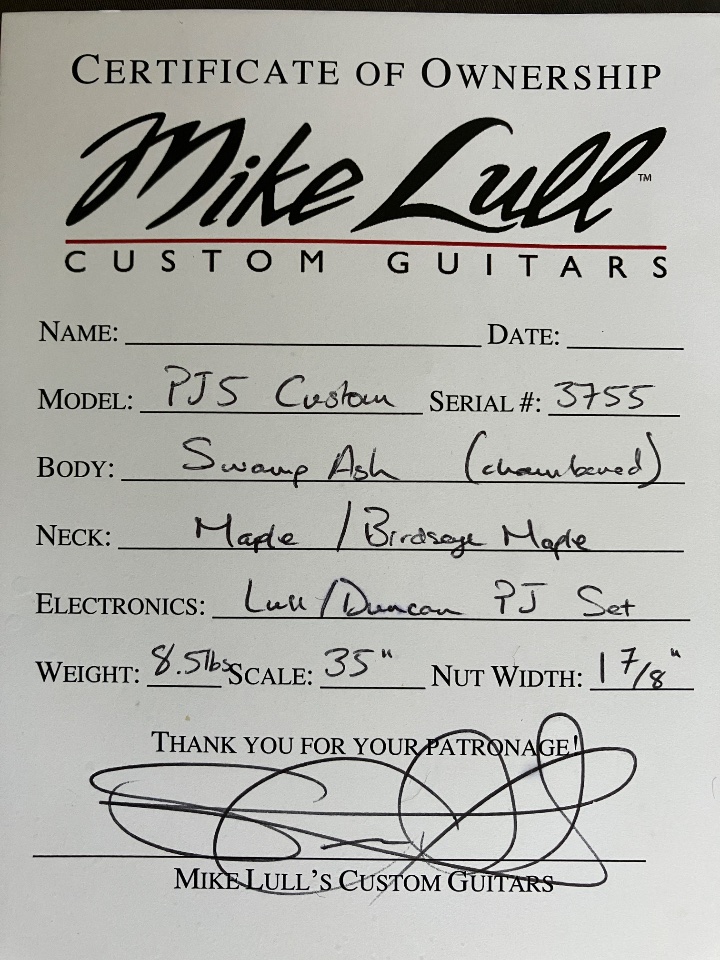 CERTIFICATE OF OWNERSHIP
Mike Lull™
CUSTOM GUITARS
NAME: DATE:
MODEL: PJ5 Custom SERIAL #: 3755
BODY: Swamp Ash (chambered)
NECK: Maple / Birdseye Maple
ELECTRONICS: Lull/Duncan PJ Set
WEIGHT: 8.5lbs SCALE: 35" NUT WIDTH: 1 7/8"
THANK YOU FOR YOUR PATRONAGE!
MIKE LULL'S CUSTOM GUITARS